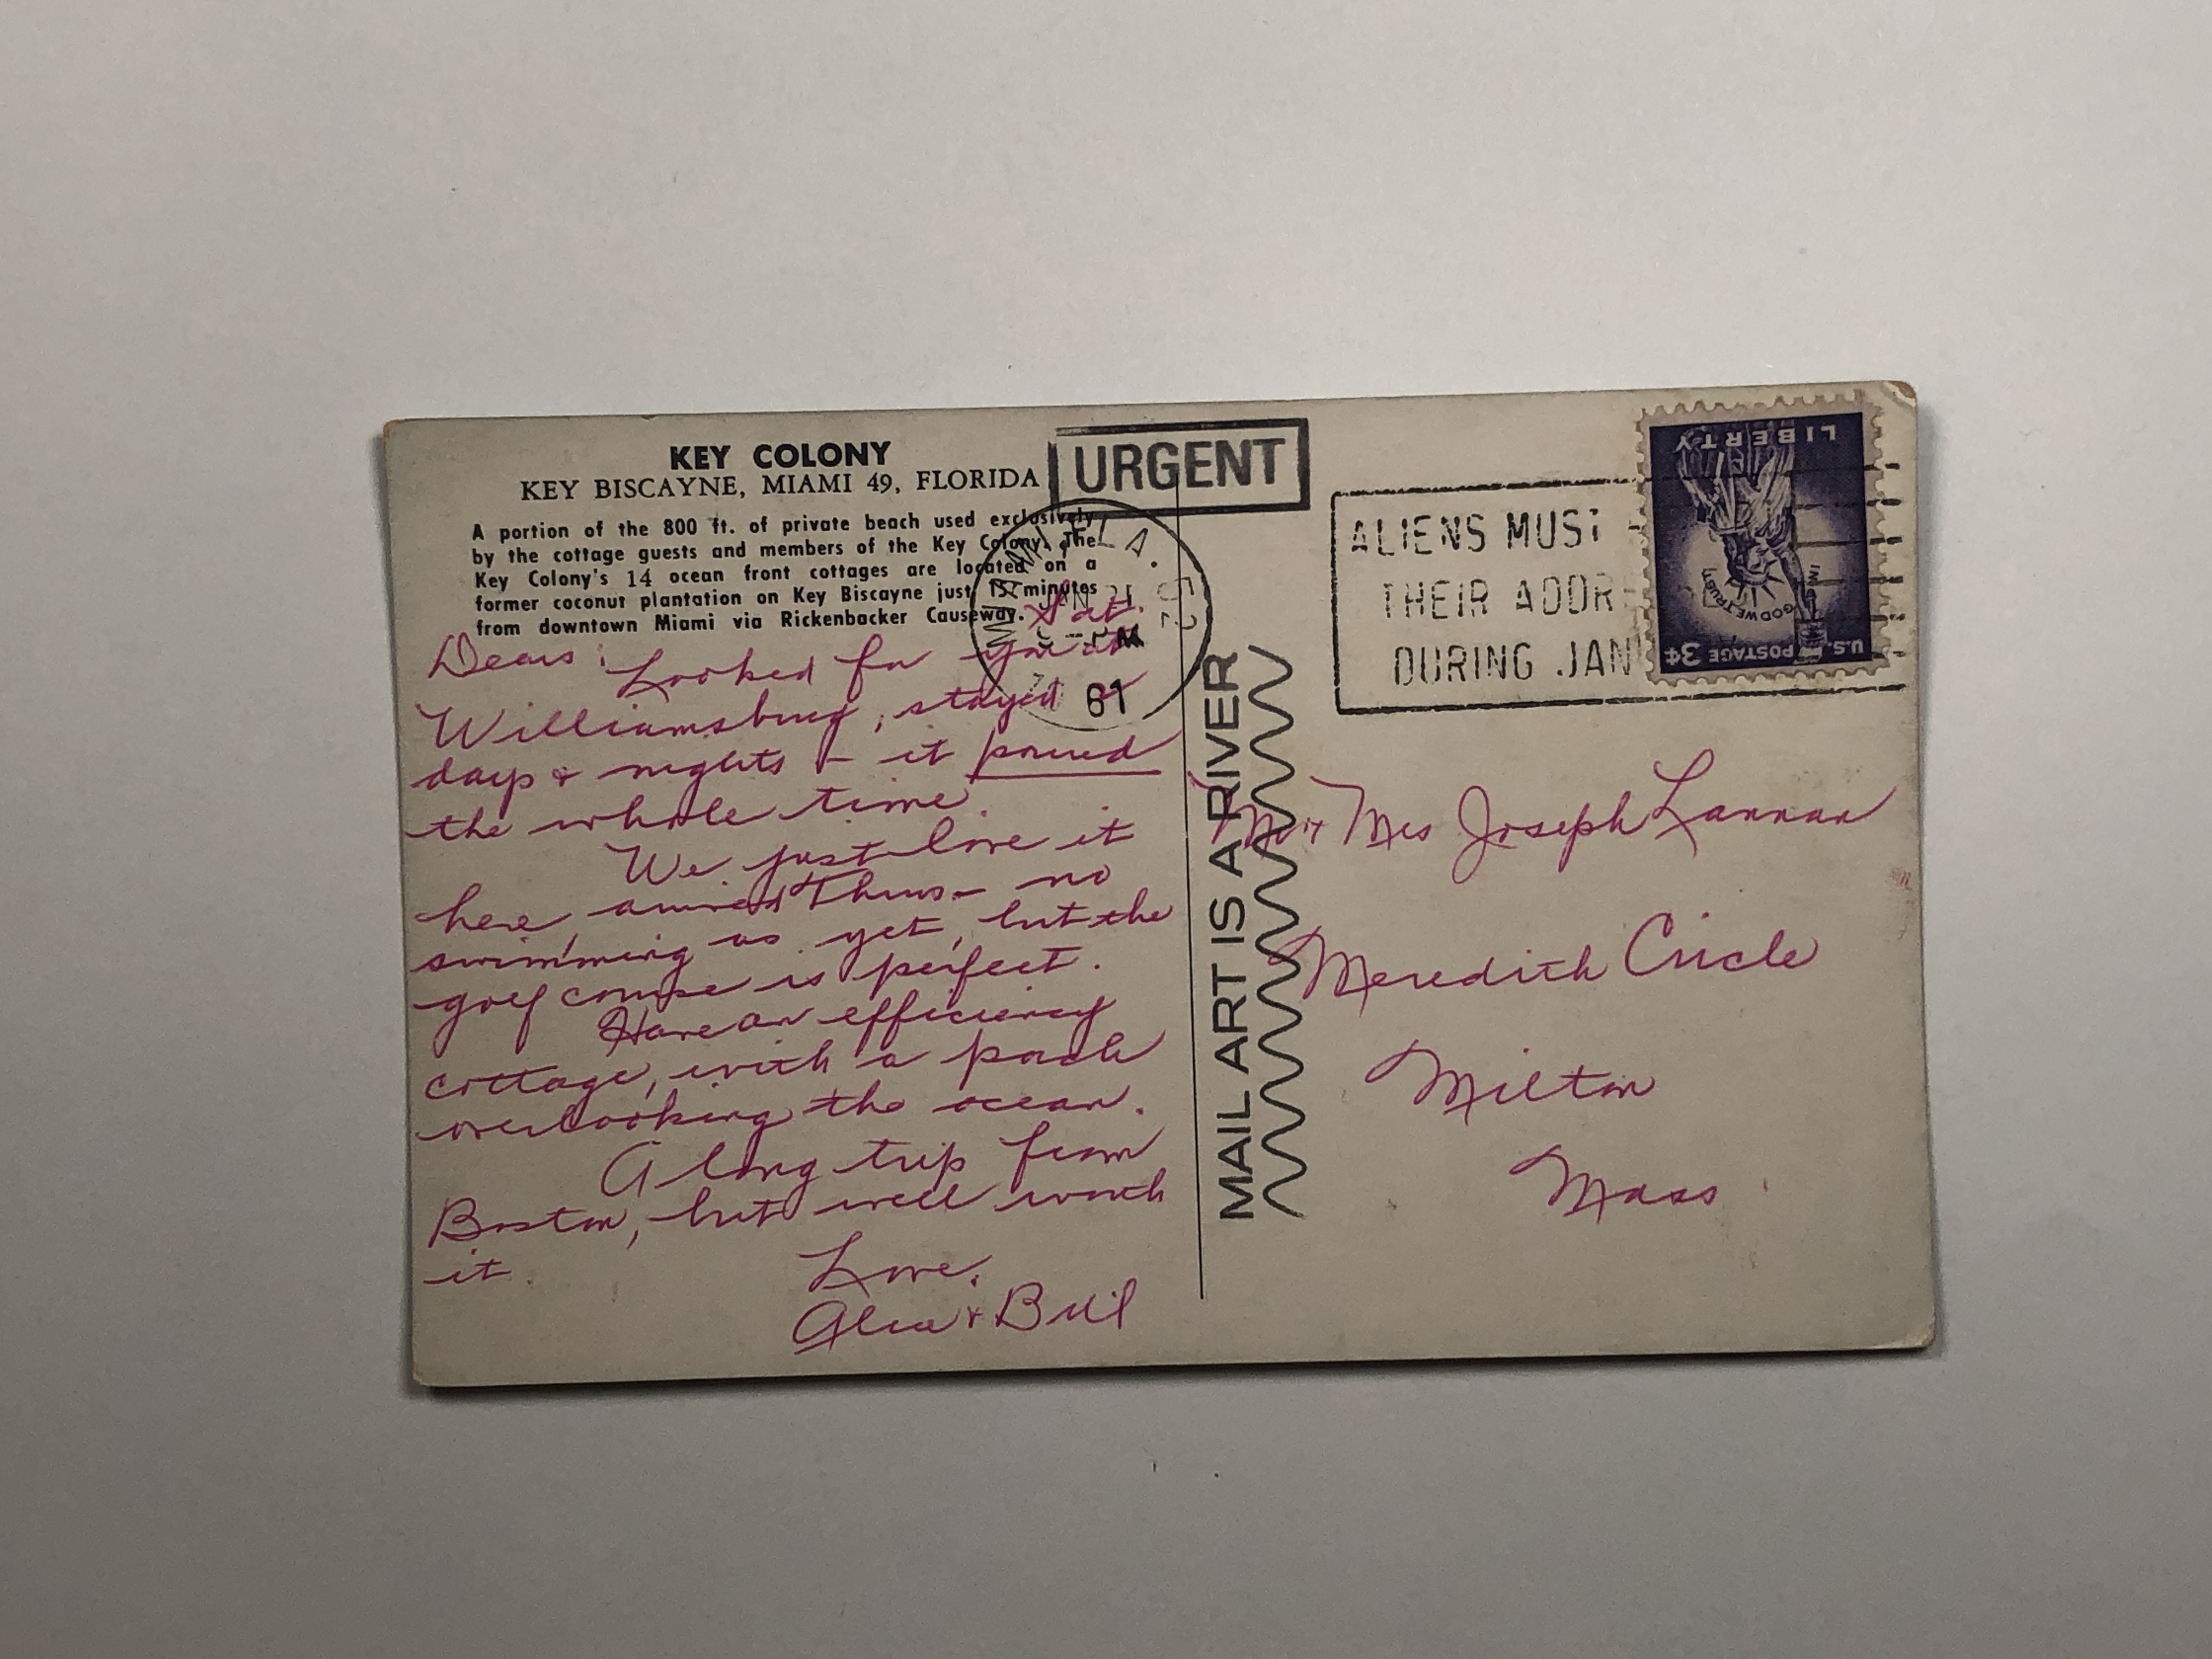 KEY COLONY
KEY BISCAYNE, MIAMI 49, FLORIDA
A portion of the 800 ft. of private beach used exclusively
by the cottage guests and members of the Key Colony. The
Key Colony's 14 ocean front cottages are located on a
former coconut plantation on Key Biscayne just 15 minutes
from downtown Miami via Rickenbacker Causeway.
Sat.
Dears:
Looked for you in
Williamsburg, stayed 2
days & nights - it poured
the whole time.
We just love it
here, arrived Thurs - no
swimming as yet, but the
golf course is perfect.
Have an efficiency
cottage, with a porch
overlooking the ocean.
A long trip from
Boston, but well worth
it.
Love,
& Bill
URGENT
MIAMI, FLA.
JAN 21
PM
61
MAIL ART IS A RIVER
ALIENS MUST
THEIR ADDR
DURING JAN
LIBERTY
IN GOD WE TRUST
U.S. POSTAGE 3¢
Mr & Mrs Joseph Lannan
Meredith Circle
Milton
Mass